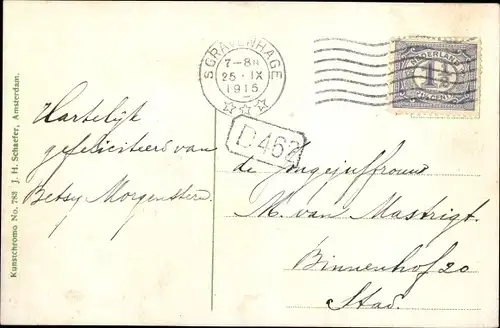 Hartelijk
gefeliciteers van
Betsy Morgenstern.
Kunstchromo No. 783 J. H. Schaefer, Amsterdam.
SGRAVENHAGE
7-8N
25 · IX
1915
D462
NEDERLAND
1½
de Jongejuffrouw
M. van Mastrigt.
Binnenhof 20
Stad.